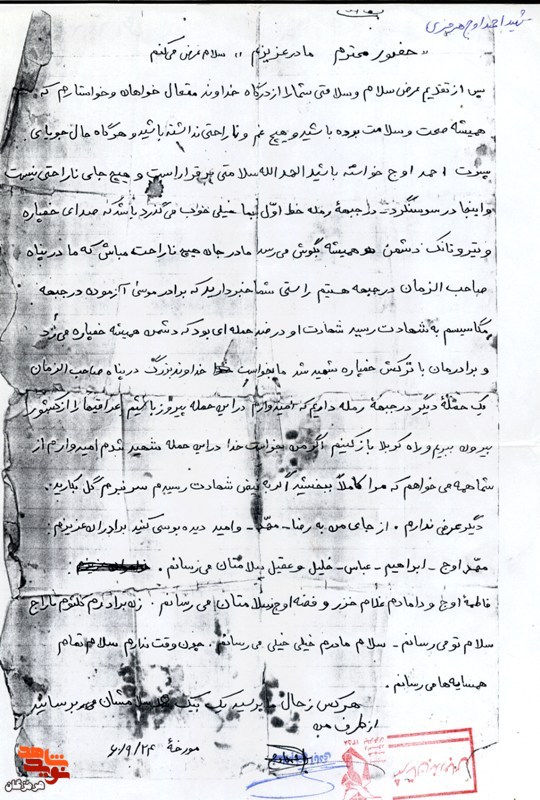 شهید احمد اوج هرمزی
بسمه تعالی
«حضور محترم مادر عزیزم» سلام عرض می‌کنم
پس از تقدیم عرض سلام و سلامتی شما را از درگاه خداوند متعال خواهان و خواستارم که
همیشه صحت و سلامت بوده باشید و هیچ غم و ناراحتی نداشته باشید و هرگاه حال جویای
پسرت احمد اوج خواسته باشید الحمد الله سلامتی برقرار است و هیچ جای ناراحتی نیست
و اینجا در سوسنگرد - در جبهه رمله خط اول بما خیلی خوب می‌گذرد باشد که صدای خمپاره
و تیر و تانک دشمن همیشه بگوش می‌رسد مادر جان هیچ ناراحت مباش که ما در پناه
صاحب الزمان در جبهه هستیم راستی شما خبر دارید که برادر موسی آزموده در جبهه
مگاسیم به شهادت رسید شهادت او در ضد حمله ای بود که دشمن همینه خمپاره می‌زد
و برادرمان با ترکش خمپاره شهید شد ما بخواست خداوند بزرگ در پناه صاحب الزمان
یک حملهٔ دیگر در جبههٔ رمله داریم که امیدوارم در این حمله پیروز باشیم عراقیها را از کشور
بیرون ببریم و راه کربلا باز کنیم اگر من بخواست خدا در این حمله شهید شدم امیدوارم از
شما همه می خواهم که مرا کاملاً ببخشید اگر به فیض شهادت رسیدم سر قبرم گل بکارید.
دیگر عرضی ندارم. از جای من به رضا - محمد - وامید دیده بوسی کنید برادران عزیزم:
محمد اوج - ابراهیم - عباس - خلیل و عقیل سلامتان می‌رسانم.
فاطمه اوج و دامادم غلام خزر و فضه اوج سلامتان می رسانم. زن برادرم کلثوم تاراج
سلام تو می رسانم - سلام مادرم خیلی خیلی می رسانم. چون وقت ندارم سلام تمام
همسایه‌ها می رسانم.
هرکس ز حال ما پرسید یک بیک سلامشان می برسانید
از طرف من
مورخهٔ ۶۰/۹/۲۴
نوید شاهد
هرمزگان